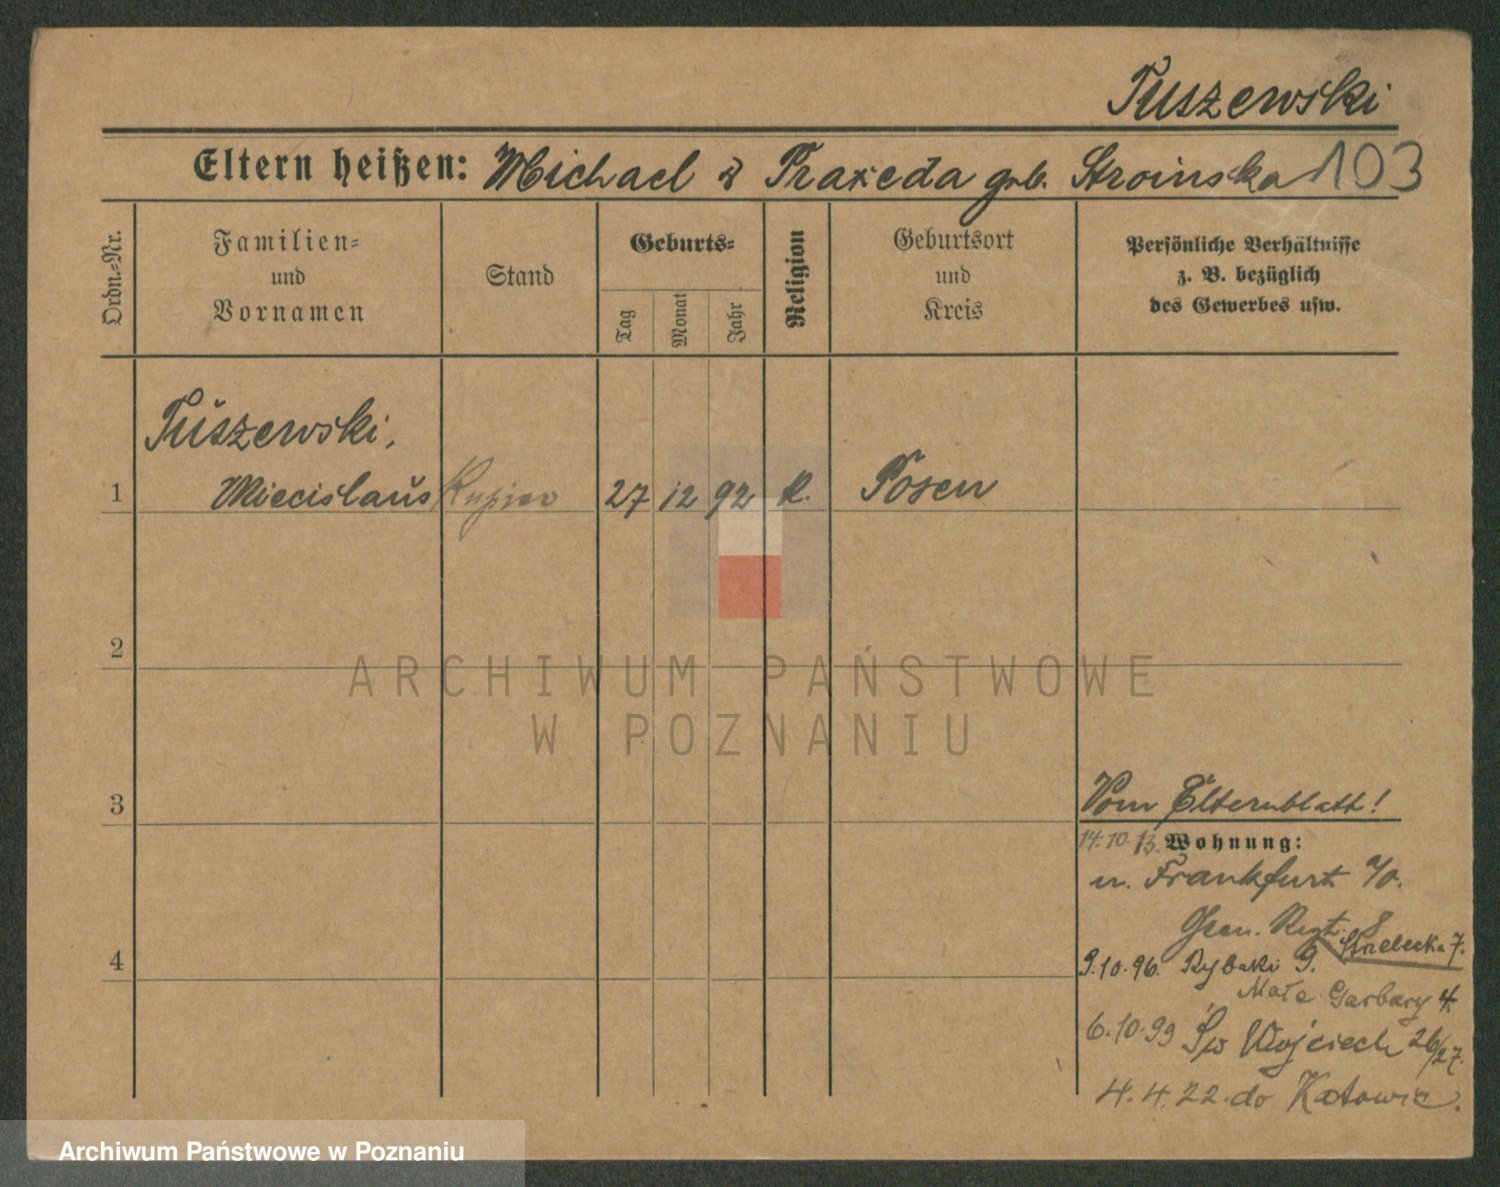 Tuszewski
Eltern heißen: Michael & Praxeda geb. Stroinska 103
Ordn.-Nr.
Familien-
und
Vornamen
Stand
Geburts-
Tag
Monat
Jahr
Religion
Geburtsort
und
Kreis
Persönliche Verhältnisse
z. B. bezüglich
des Gewerbes usw.
Tuszewski,
1 Miecislaus Kupiec 27 12 92 k. Posen
2
3
4
Vom Elternblatt!
14.10.13. Wohnung:
n. Frankfurt a/o.
Gren. Regt. 8
Strzelecka 7.
9.10.96. Rybaki 9.
Małe Garbary 4.
6.10.99 Św Wojciech 26/27.
4.4.22. do Katowic.
ARCHIWUM PAŃSTWOWE
W POZNANIU
Archiwum Państwowe w Poznaniu